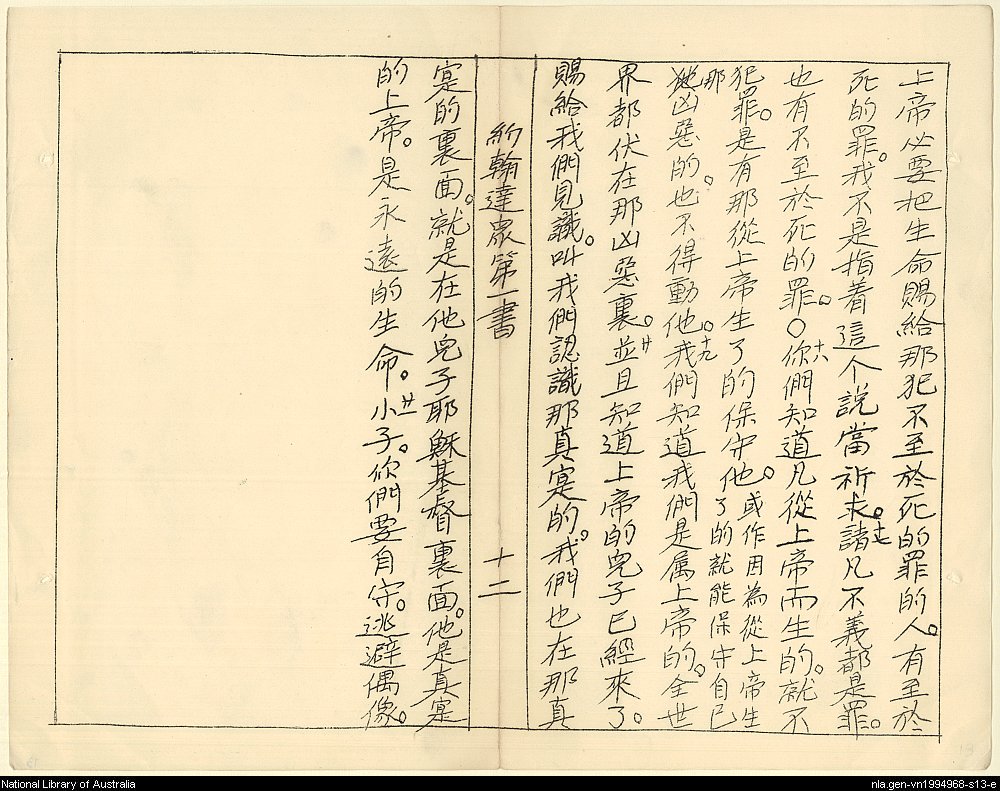 上帝必要把生命賜給那犯不至於死的罪的人。有至於
死的罪。我不是指着這个說當祈求。十七諸凡不義都是罪。
也有不至於死的罪。〇十八你們知道凡從上帝而生的。就不
犯罪。是有那從上帝生了的保守他。或作因為從上帝生了的就能保守自己
那凶惡的。也不得動他。十九我們知道我們是属上帝的。全世
界都伏在那凶惡裏。廿並且知道上帝的兒子已經來了。
賜給我們見識。叫我們認識那真寔的。我們也在那真
約翰達眾第一書 十二
寔的裏面。就是在他兒子耶穌基督裏面。他是真寔
的上帝。是永遠的生命。廿一小子。你們要自守。逃避偶像。
National Library of Australia
nla.gen-vn1994968-s13-e